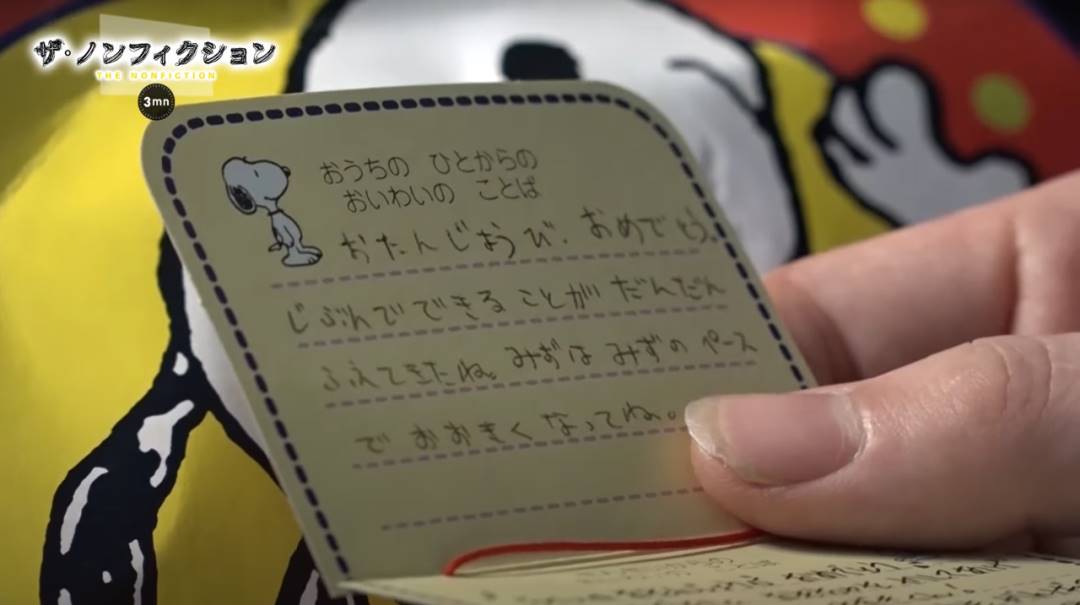 ザ・ノンフィクション
THE NONFICTION
3mn
おうちの ひとからの
おいわいの ことば
おたんじょうび、おめでとう。
じぶんでできる ことが だんだん
ふえてきたね。みずは みずの ペース
で おおきく なってね。